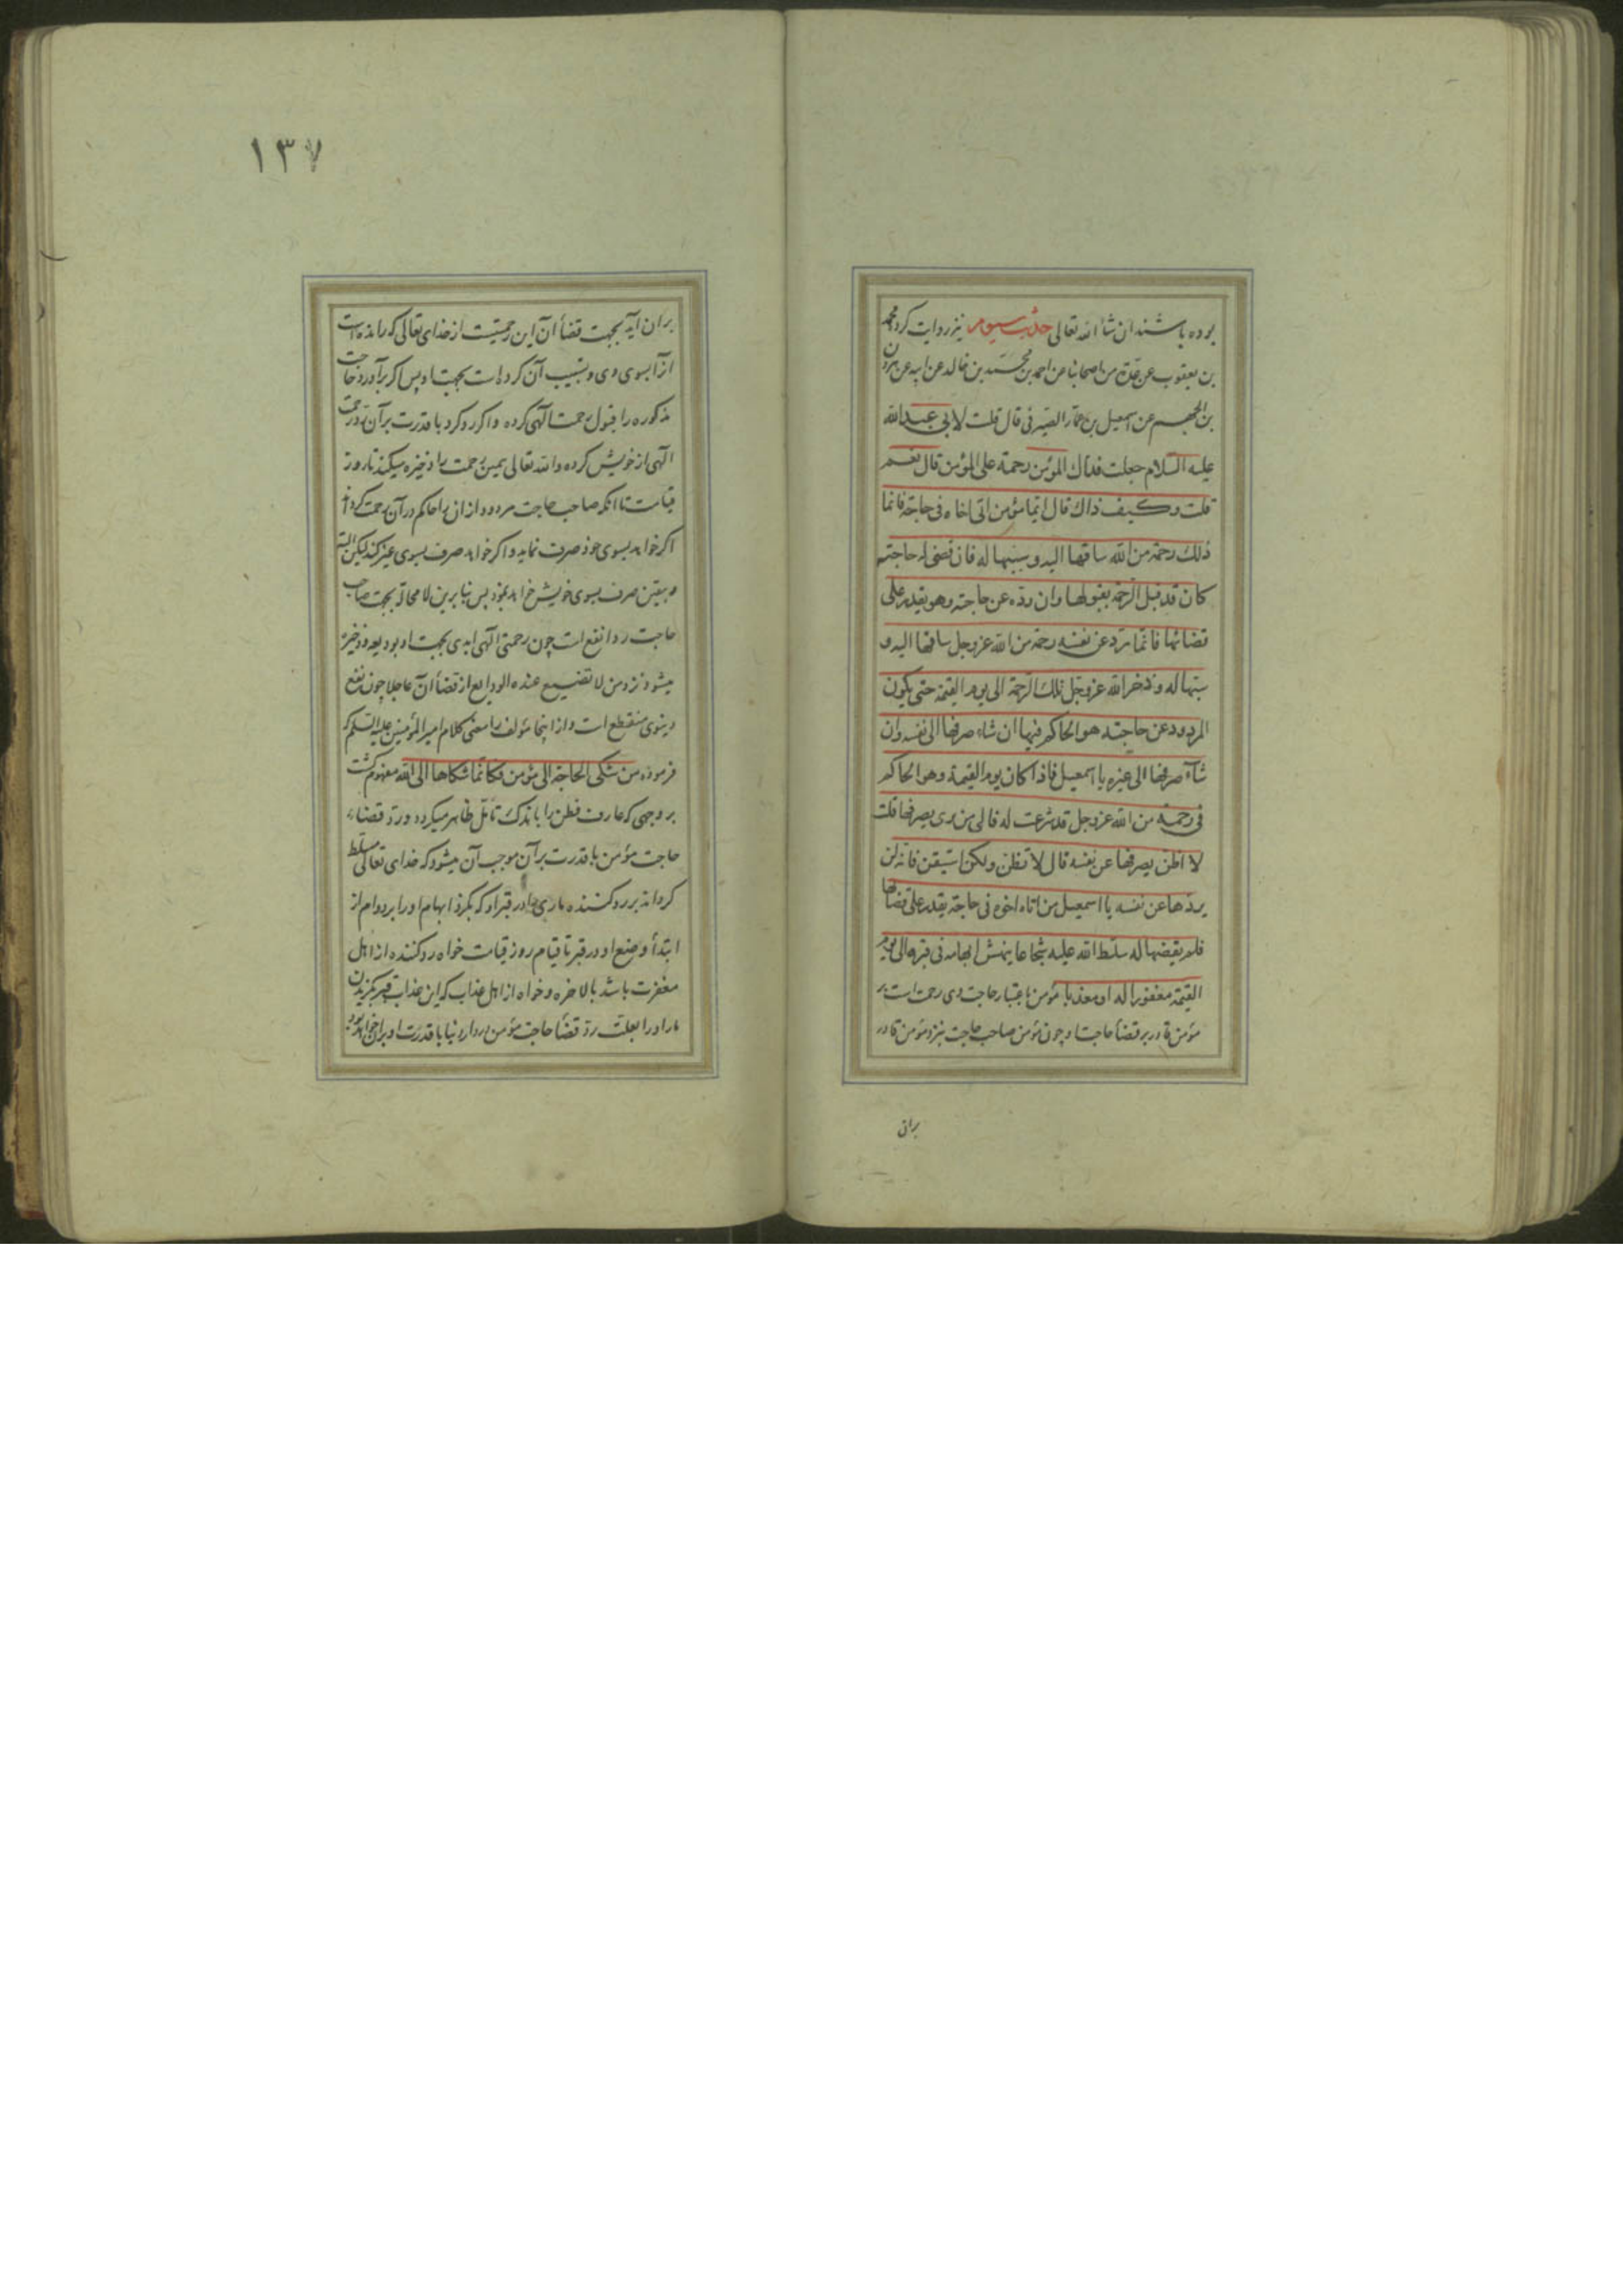 بوده باشند ان شاء الله تعالی حدیث سیوم نیز روایت کرد محمد
بن یعقوب عن عدة من اصحابنا عن احمد بن محمد بن خالد عن ابیه عن هرون
بن الجهم عن اسمعیل بن عمار الصیرفی قال قلت لابی عبد الله
علیه السلام جعلت فداك المؤمن رحمة علی المؤمن قال نعم
قلت وكیف ذاك قال ایما مؤمن اتی اخاه فی حاجة فانما
ذلك رحمة من الله ساقها الیه و سببها له فان قضی له حاجته
كان قد قبل الرحمة بقبولها وان رده عن حاجته وهو یقدر علی
قضائها فانما رد عن نفسه رحمة من الله عز وجل ساقها الیه و
سببها له و ذخر الله عز وجل تلك الرحمة الی یوم القیمة حتی یكون
المردود عن حاجته هو الحاكم فیها ان شاء صرفها الی نفسه وان
شاء صرفها الی غیره یا اسمعیل فاذا كان یوم القیمة وهو الحاكم
فی رحمة من الله عز وجل قد شرعت له فالی من تری یصرفها قلت
لا اظن یصرفها عن نفسه قال لا تظن ولكن استیقن فانه لن
یردها عن نفسه یا اسمعیل من اتاه اخوه فی حاجة یقدر علی قضائها
فلم یقضها له سلط الله علیه شجاعا ینهش ابهامه فی قبره الی یوم
القیمة مغفورا له او معذبا مؤمن باعتبار حاجت وی رحمت است بر
مؤمن قادر بر قضاء حاجت او چون مؤمن صاحب حاجت بنزد مؤمن قادر
بران
١٣٧
بران آید بجهت قضاء آن این رحمتیست از خدای تعالی که رانده است
آنرا بسوی وی و تسبیب آن کرده است بجهت او پس اگر برآورد حاجت
مذکوره را قبول رحمت الهی کرده و اگر رد کرد با قدرت برآن رد رحمت
الهی از خویش کرده و الله تعالی همین رحمت را ذخیره میکند تا روز
قیامت تا آنکه صاحب حاجت مردود ازان را حاکم در آن رحمت گرداند
اگر خواهد بسوی خود صرف نماید و اگر خواهد صرف بسوی غیر کند لیکن البته
و بیقین صرف بسوی خویش خواهد نمود پس بنابرین لا محاله بجهت صاحب
حاجت رد انفع است چون رحمتی الهی ابدی بجهت او بودیعه و ذخیره
میشود نزد من لا تضیع عنده الودایع از قضاء آن عاجلا چون نفع
دینوی منقطع است و از اینجا مؤلف را معنی کلام امیر المؤمنین علیه السلم که
فرموده من شكی الحاجة الی مؤمن فكانما شكاها الی الله مفهوم گشت
بر وجهی که عارف فطن را باندک تامل ظاهر میگردد و رد قضاء
حاجت مؤمن با قدرت برآن موجب آن میشود که خدای تعالی مسلط
گرداند بر رد کننده ماری را در قبر او که بگزد ابهام او را بر دوام از
ابتداء وضع او در قبر تا قیام روز قیامت خواه رد کننده از اهل
مغفرت باشد بالاخره و خواه از اهل عذاب که این عذاب قبر بگزیدن
مار او را بعلت رد قضاء حاجت مؤمن در دار دنیا با قدرت او بران خواهد بود